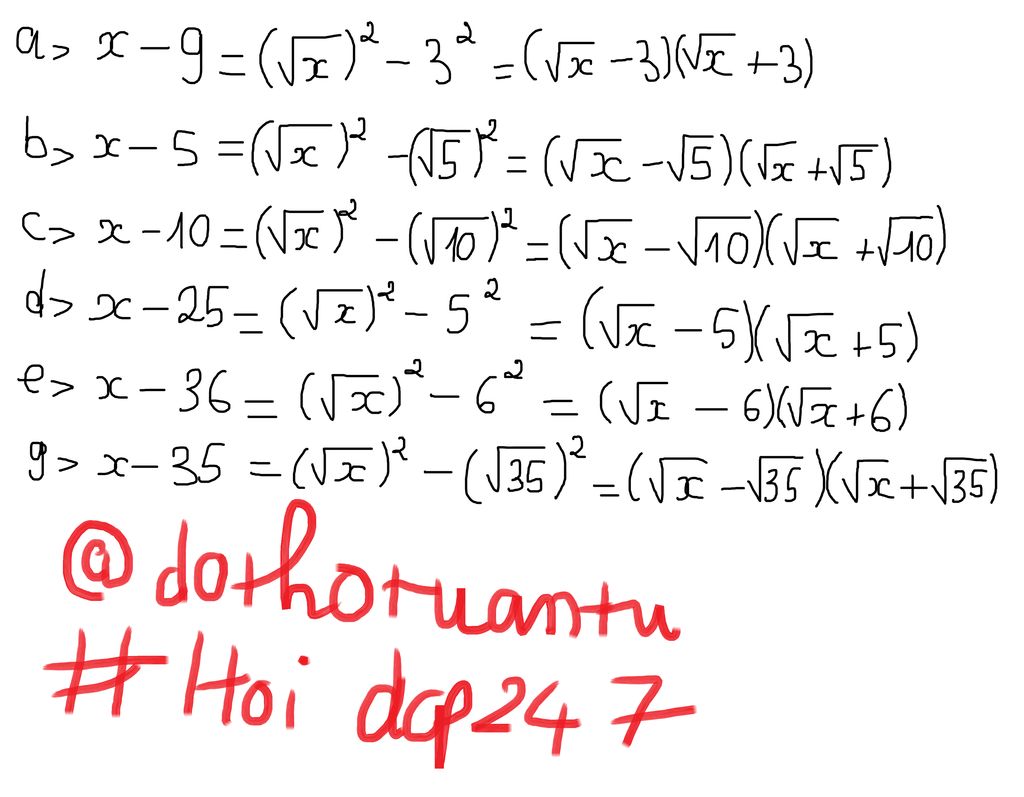 a> x - 9 = (√x)² - 3² = (√x - 3)(√x + 3)
b> x - 5 = (√x)² - (√5)² = (√x - √5)(√x + √5)
c> x - 10 = (√x)² - (√10)² = (√x - √10)(√x + √10)
d> x - 25 = (√x)² - 5² = (√x - 5)(√x + 5)
e> x - 36 = (√x)² - 6² = (√x - 6)(√x + 6)
g> x - 35 = (√x)² - (√35)² = (√x - √35)(√x + √35)
@dothotuantu
# Hoi dap247